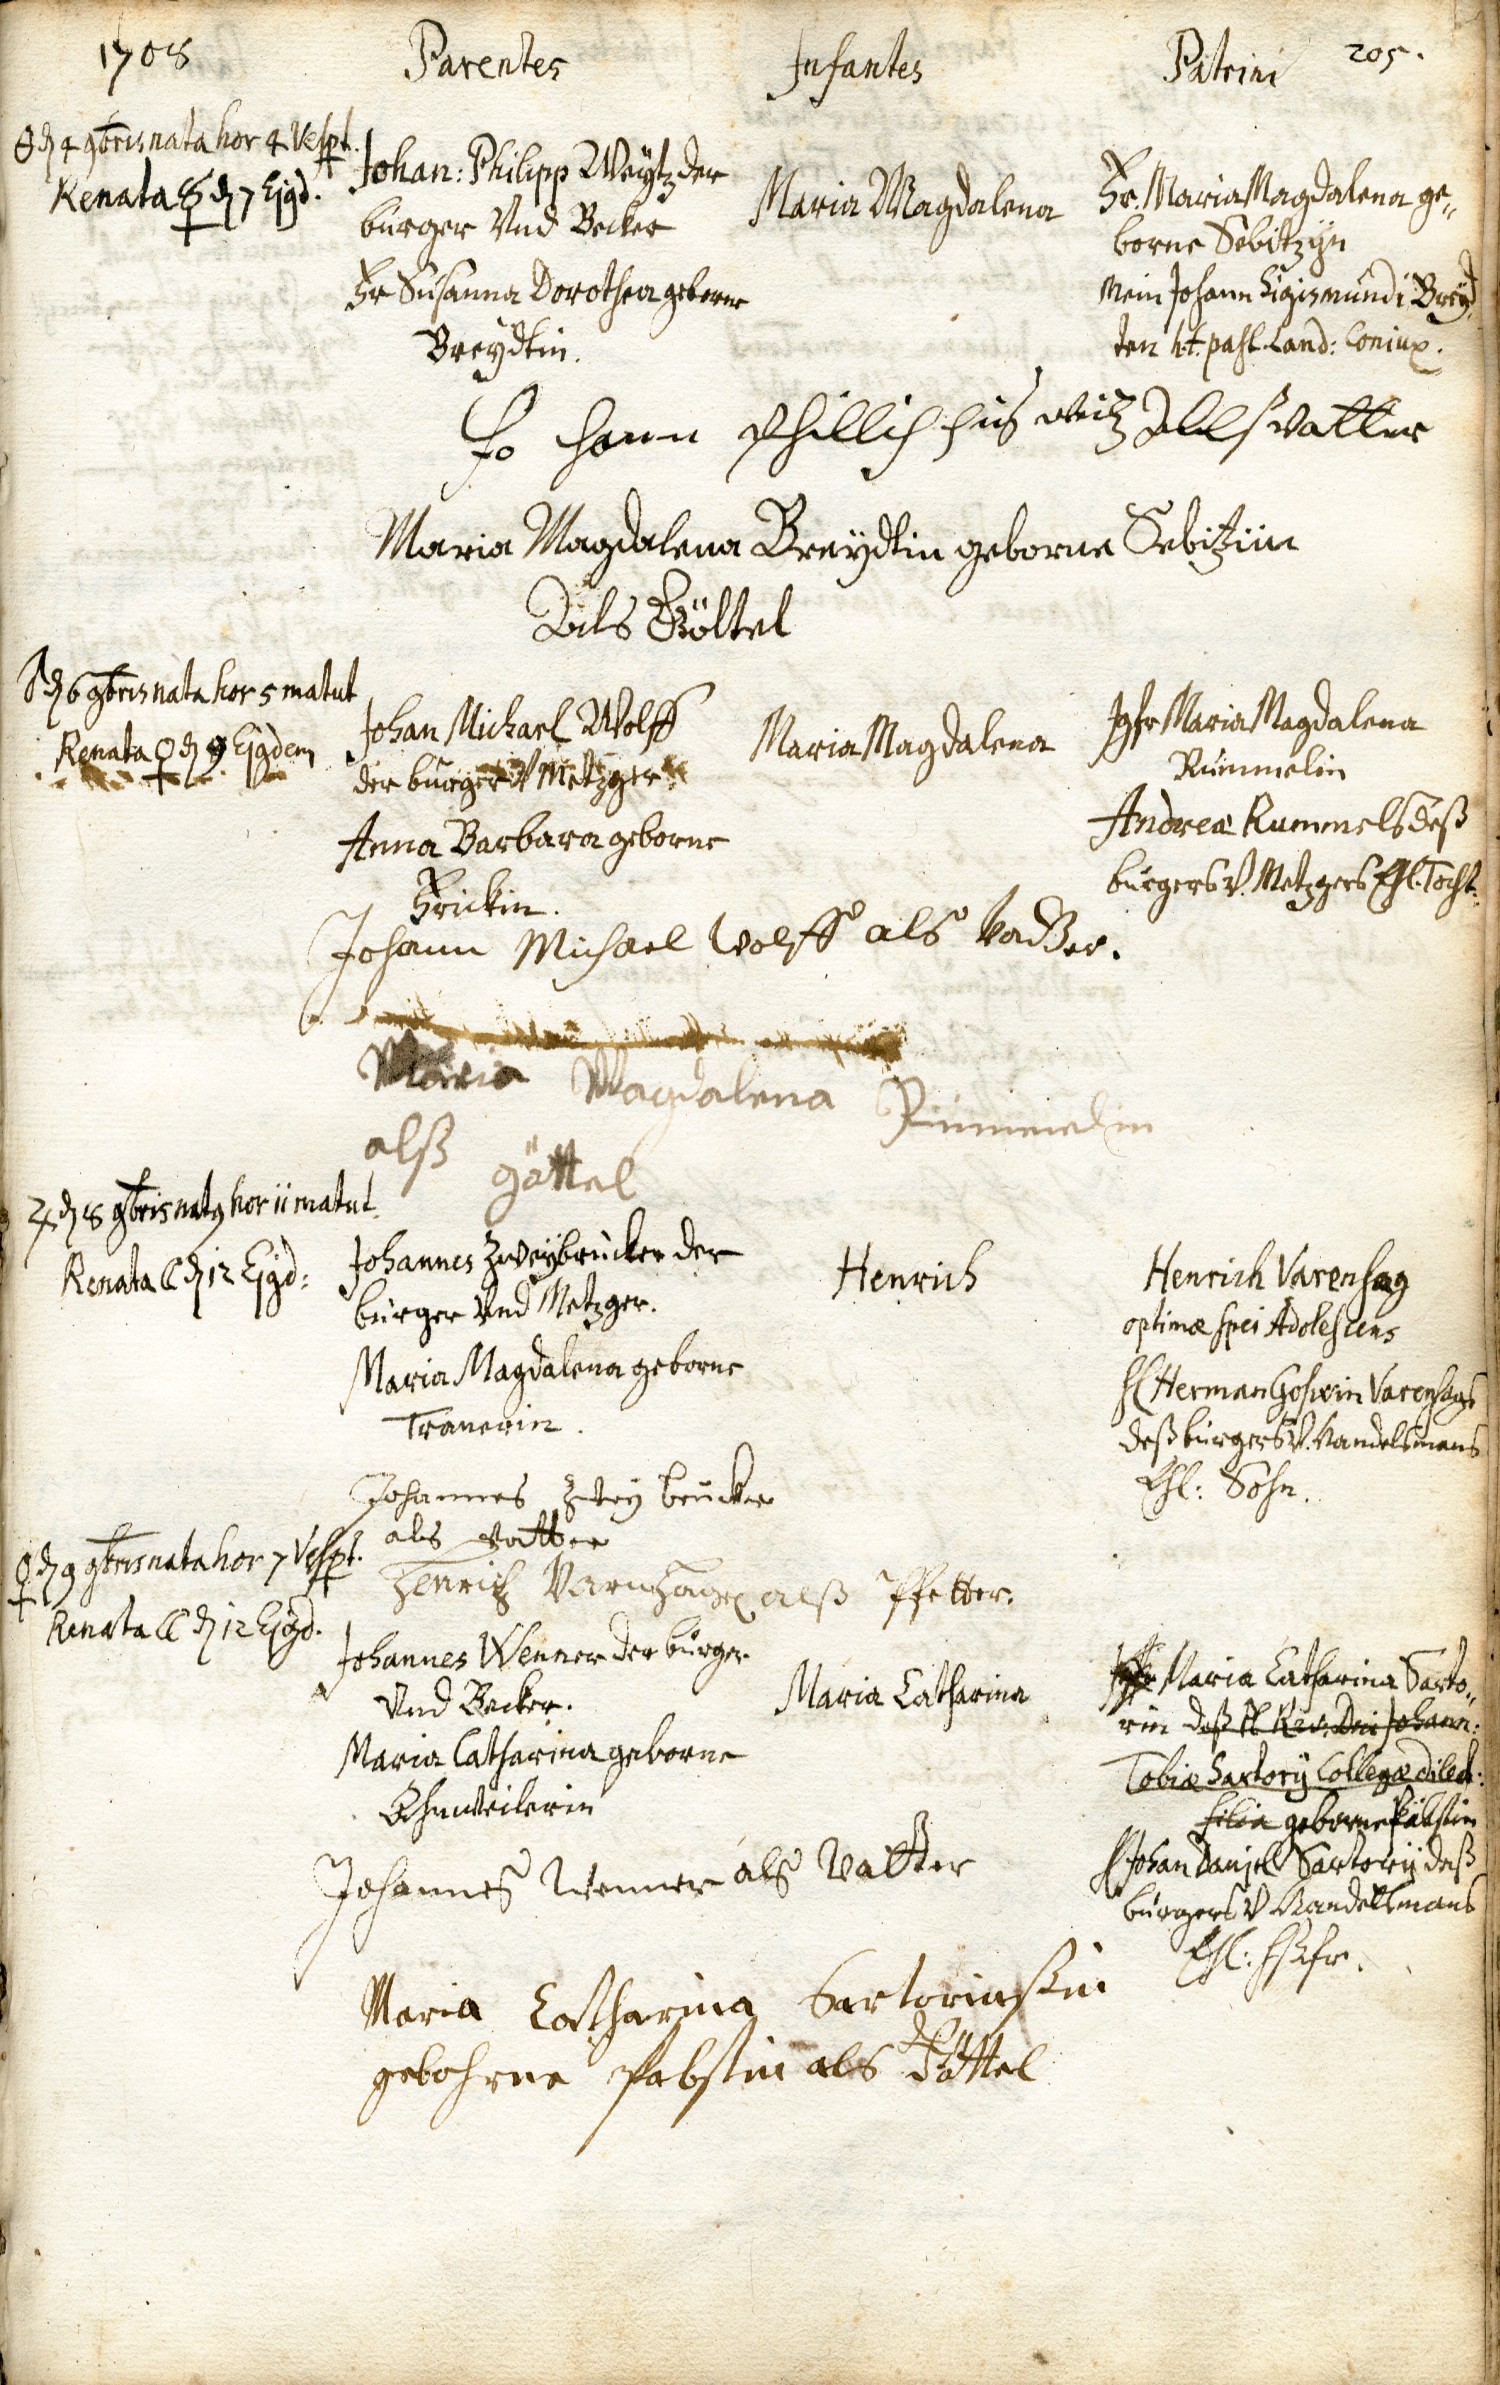 1708 Parentes Infantes Patrini 205.
☉ d 4 9bris nata hor 4 Vespt.
Renata ☿ d 7 Ejgd.
Johan: Philipp Weytz der
burger Vnd Becker
Fr Susanna Dorothea geborne
Breydtin.
Maria Magdalena
Fr. Maria Magdalena ge„
borne Sebitzyn
Mein Johann Sigismundi Breyd„
ten h.t. past. Land: Coniux.
Jo hann Phillip pus weitz Allß vatter
Maria Magdalena Breÿdtin geborne Sebitziin
Als Göttel
♂ d 6 9bris nata hor 5 matut
Renata ♀ d 9 Ejgdem
Johan Michael Wolff
der burger V Metzger.
Anna Barbara geborne
Frickin.
Maria Magdalena
Jgfr Maria Magdalena
Rummelin
Andreæ Rummels deß
burgers V. Metzgers Ehl. Tocht:
Johann Michael Wolff als Vatter.
Maria Magdalena Rümmelin
alß göttel
♃ d 8 9bris nat9 hor 11 matut.
Renata ☾ d 12 Ejgd:
Johannes Zweybrucker der
burger Vnd Metzger.
Maria Magdalena geborne
Tranerin.
Henrich
Henrich Varenhag
optimæ spei Adolescens
H Herman Goswin Varenhags
deß burgers V. Handelsmans
Ehl: Sohn.
Johannes Zwey brucker
als vatter
Henrich Varnhagen alß Pfetter.
♀ d 9 9bris nata hor 7 Vespt.
Renata ☾ d 12 Ejgd.
Johannes Wenner der burger
Vnd Becker.
Maria Catharina geborne
Ohnweilerin
Maria Catharina
Maria Catharina Sarto„
rin deß H Rev. Dni Johann:
Tobiæ Sartorij Collegæ dilect:
filia geborne Päbstin
H Johan Danjel Sartorij deß
burgers V Handelsmans
Ehl: Hßfr.
Johannes Wenner als Vatter
Maria Catharina Sartoriußin
gebohrne Pabstin als Göttel